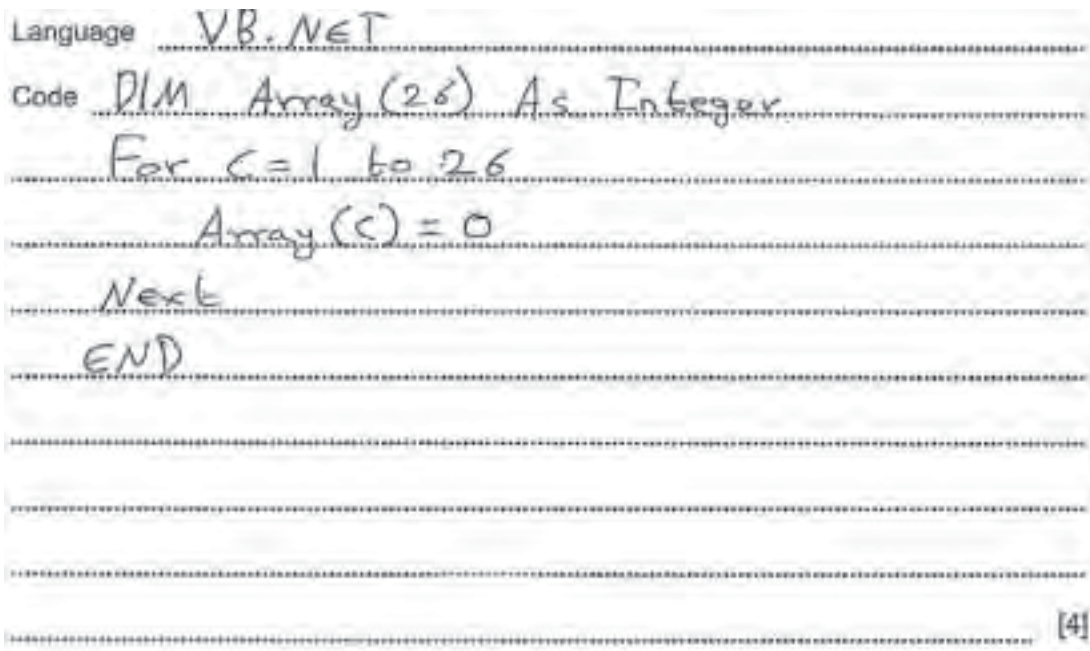 Language VB.NET
Code DIM Array (26) As Integer
For C = 1 to 26
Array (C) = 0
Next
END
[4]